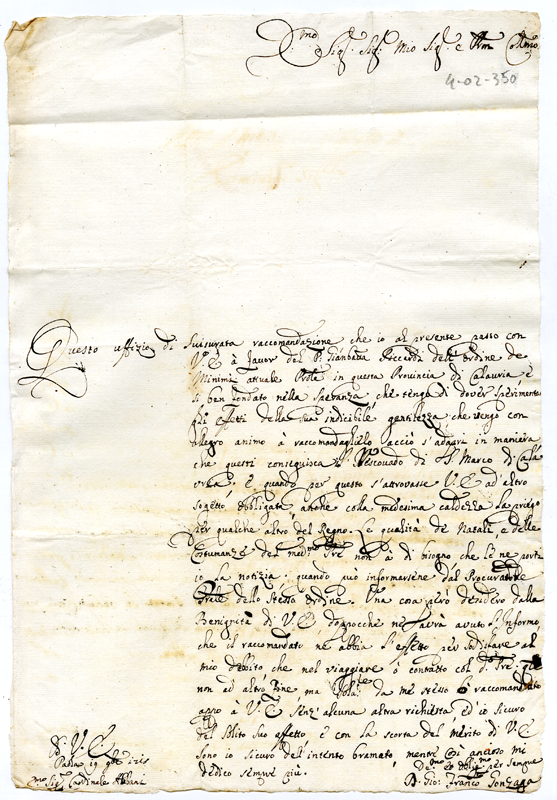 Sig.r Sig.r Mio Sig.r e
4-02-350
Questo uffizio di suisurata raccomandazione che io al presente passo con
V.E. à favor del P. Gianbatta Riccardi dell'ordine de
Minimi attuale in questa Provincia di Calauria è
si ben fondato nella speranza, che tengo di dover sperimentar
gli effetti della sua indicibile gentilezza che vengo con
allegro animo à raccomandaglielo acciò s'adopri in maniera
che questi conseguisca il Vescovado di S. Marco di Cala
uria. E quando per questo s'atrovasse V.E. ad'altro
sogetto obligata, anche colla medesima caldezza la priego
per qualche altro del Regno. Le qualità de Natali, e delle
Costumanze del non à di bisogno che le ne porti
io la notizia, quando può informarsene dal Procuratore
Grale dello stesso ordine. Una cosa però desidero dalla
Benignità di V.E. doppocche ne haurà avuto l'informo
che il raccomandato ne abbia l'effetto per sodisfare al
mio debito che nel viaggiare ò contatto col
non ad altro fine ma da me stesso ò raccomandato
appo à V.E. senz'alcuna altra richiesta, ed io sicuro
del solito suo affetto e con la scorta del merito di V.E.
sono io sicuro dell'intento bramato, mentre così mi
dedico sempre più.
Di V.E.
Padua 19 9bre 1715
Sig.r Cardinale Albani
per sempre
D. Gio: Franco Gonzaga